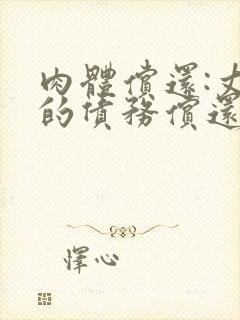 肉體償還:丈
的債務償還
懌心